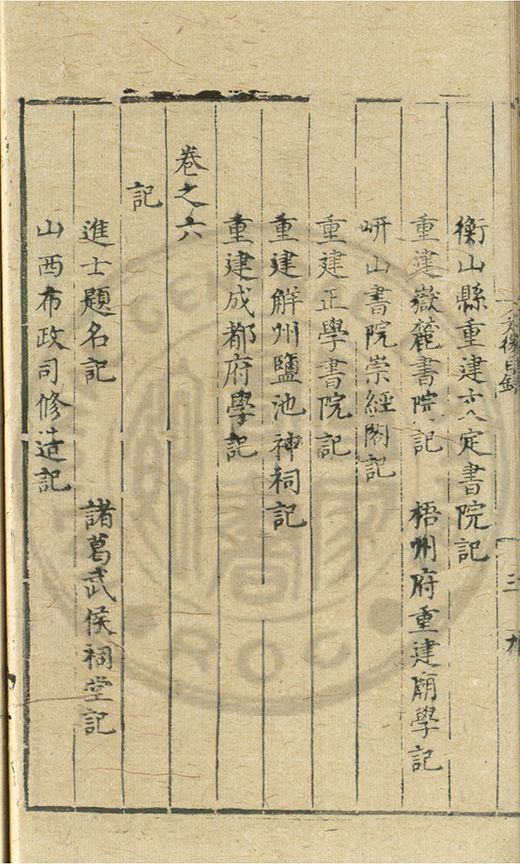 衡山縣重建文定書院記
重建嶽麓書院記 梧州府重建廟學記
岍山書院崇經閣記
重建正學書院記
重建解州鹽池神祠記
重建成都府學記
卷之六
記
進士題名記 諸葛武侯祠堂記
山西布政司修造記